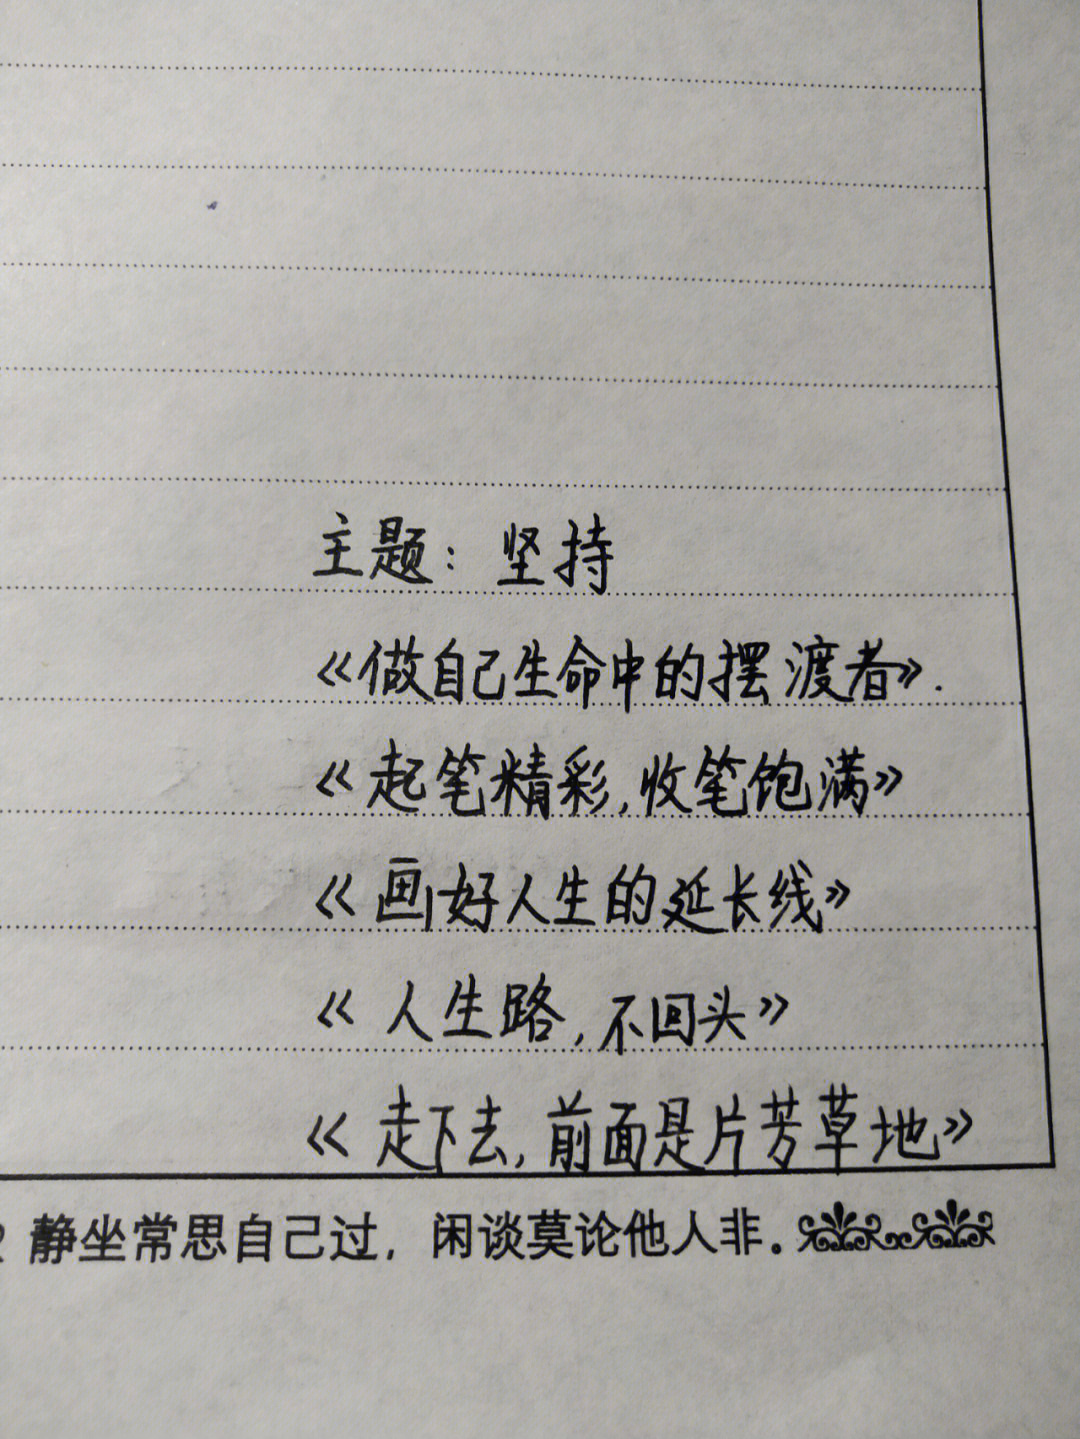 主题：坚持
《做自己生命中的摆渡者》.
《起笔精彩,收笔饱满》
《画好人生的延长线》
《人生路,不回头》
《走下去,前面是片芳草地》
静坐常思自己过，闲谈莫论他人非。